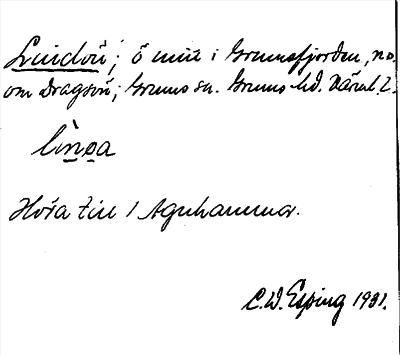 Lindön; ö mitt i Grumsfjorden, no.
om Dragsön; Grums sn. Grums hd. Värml. l.
lìnɷa
Höra till Agnhammar.
C.W. Esping 1931.